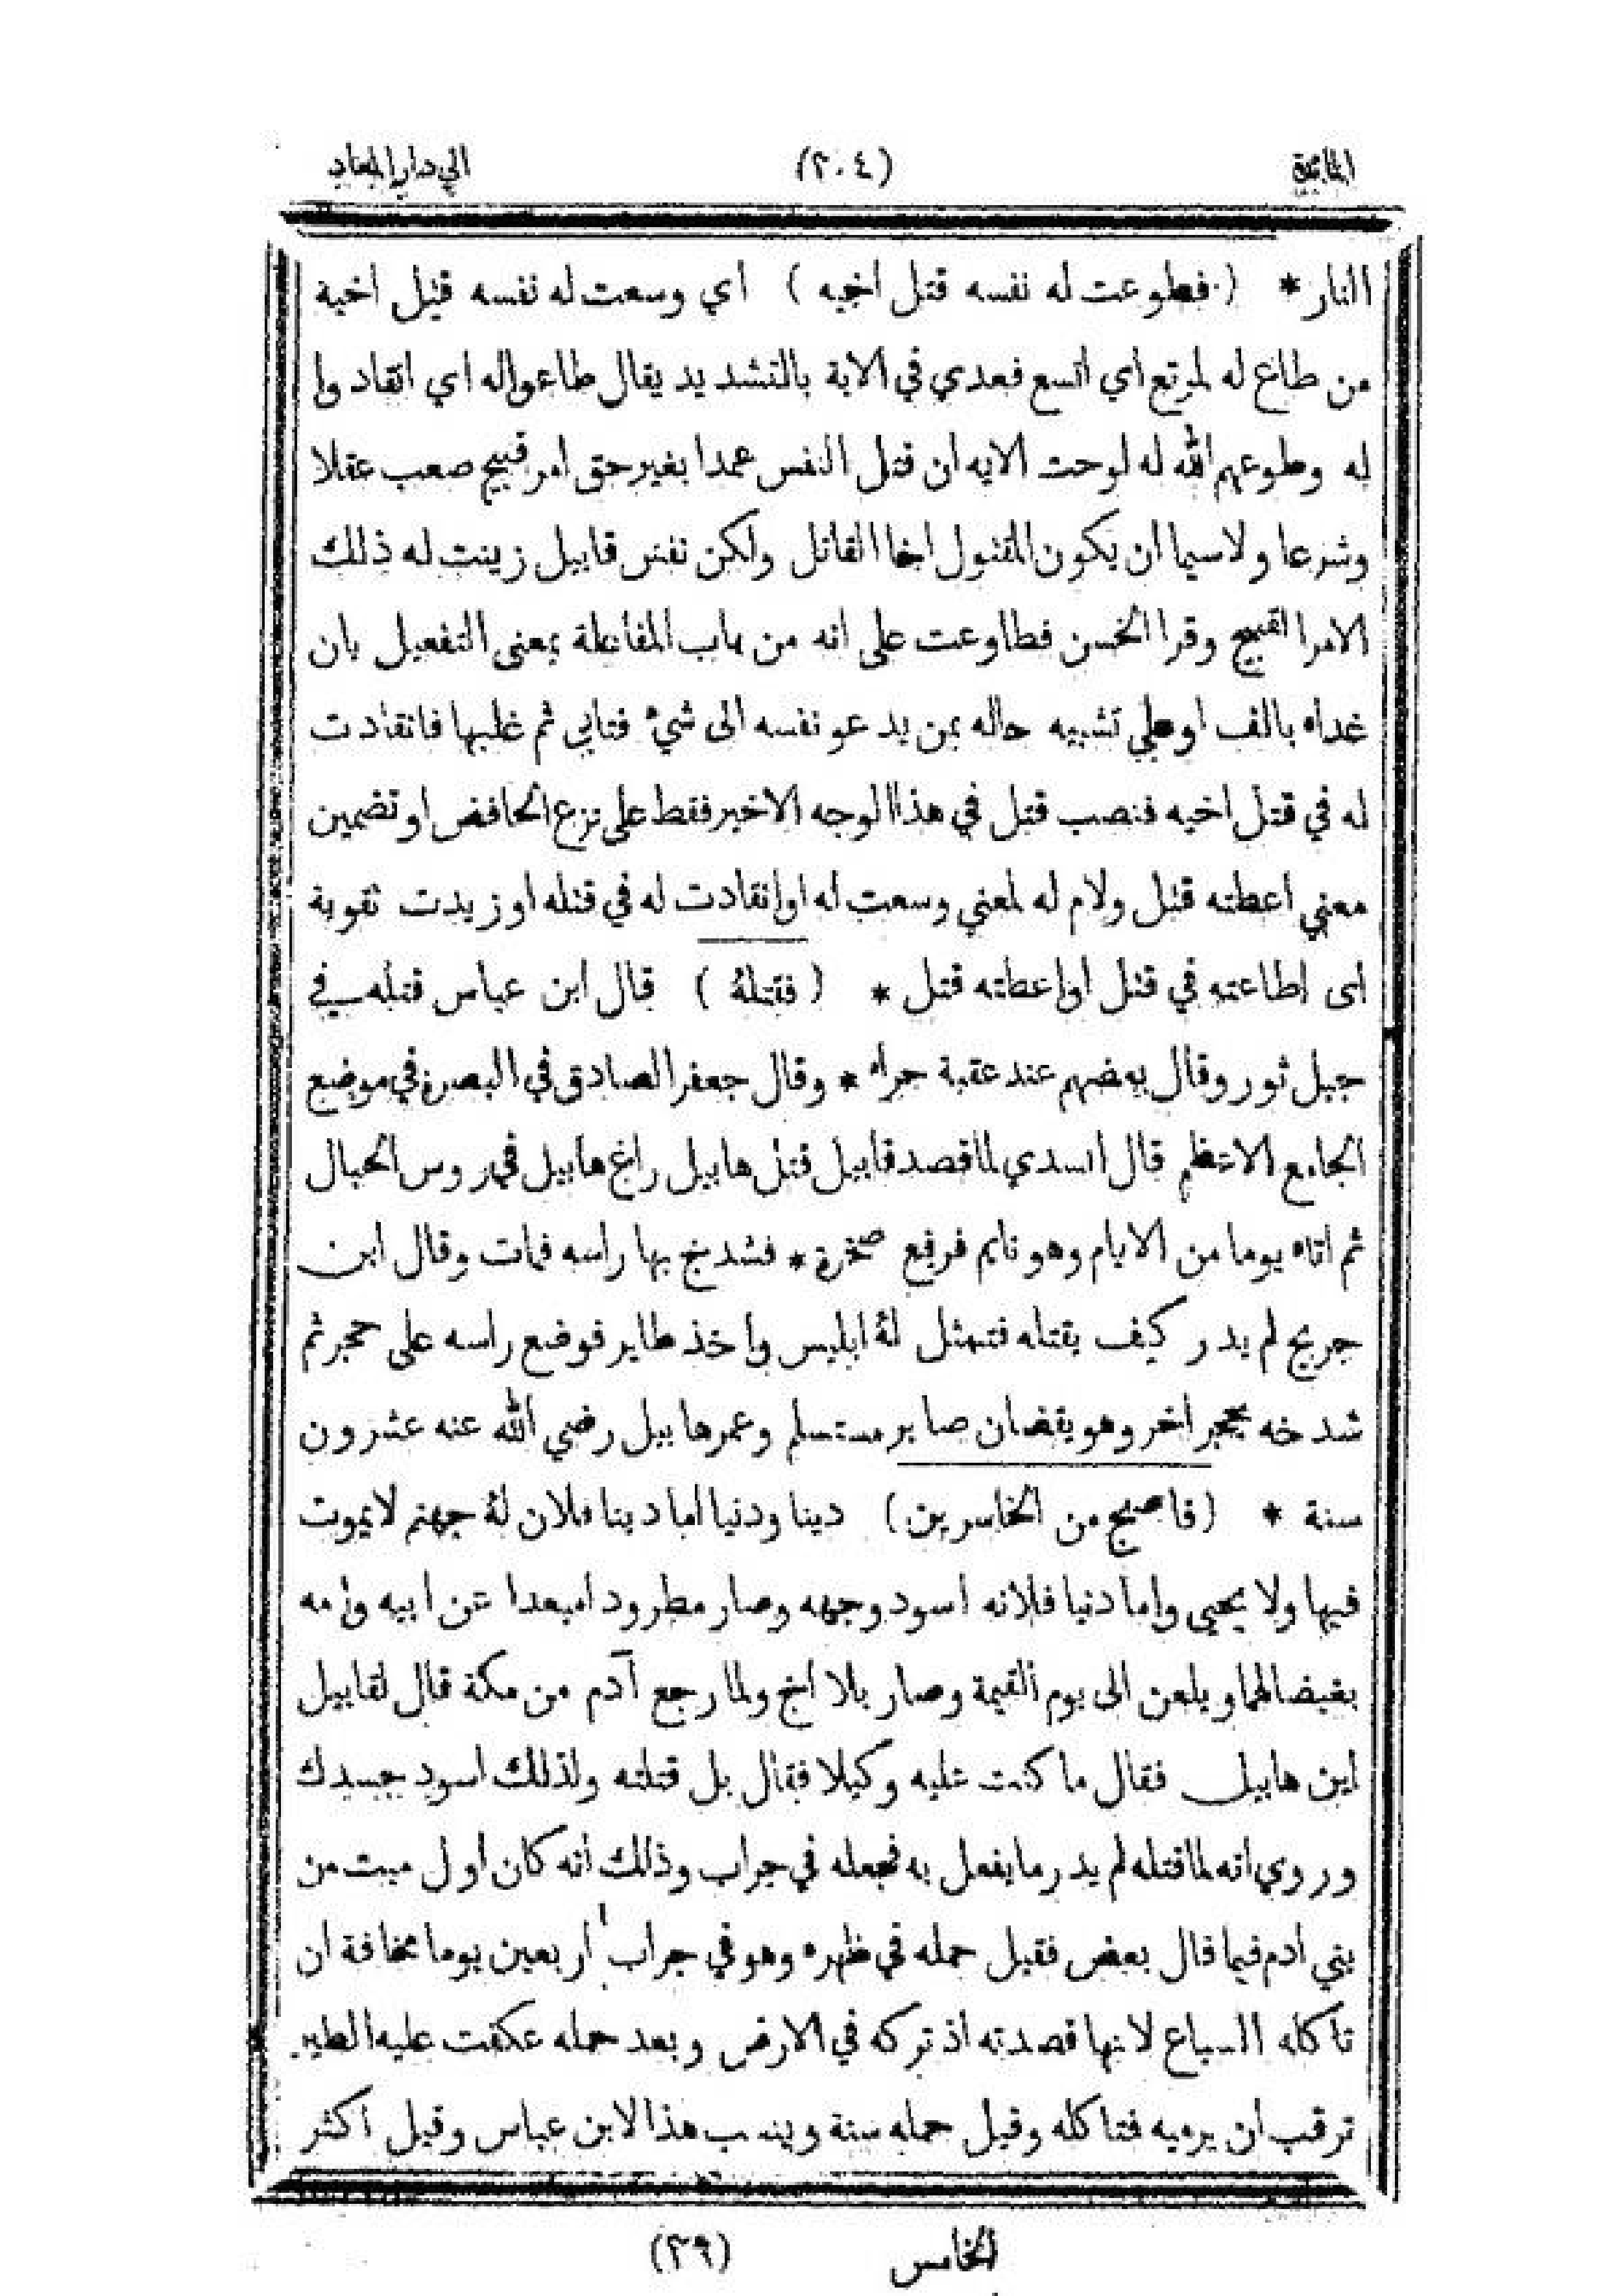 المائدة (٢٠٤) الى دار المعاد
النار * ( فطوعت له نفسه قتل اخيه ) اي وسعت له نفسه قتل اخية
من طاع له المرتع اي اتسع فعدي في الاية بالتشديد يقال طاعواله اي انقادوا
له وطوعهم الله له لوحت الايه ان قتل النفس عمدا بغير حق امر قبيح صعب عقلا
وشرعا ولاسيما ان يكون المقتول اخا القاتل ولكن نفس قابيل زينت له ذلك
الامر القبيح وقرا الحسن فطاوعت على انه من باب المفاعلة بمعنى التفعيل بان
عداه بالف او على تشبيه حاله بمن يدعو نفسه الى شيء فتابى ثم غلبها فانقادت
له في قتل اخيه فنصب قتل في هذا الوجه الاخير فقط على نزع الخافض او تضمين
معني اعطته قتل ولام له لمعني وسعت له او انقادت له في قتله او زيدت تقوية
اى اطاعته في قتل او اعطته قتل * ( فقتلهُ ) قال ابن عباس قتله في
جبل ثور وقال بعضهم عند عقبة حراء * وقال جعفر الصادق في البصرة في موضع
الجامع الاعظم قال السدي لما قصد قابيل قتل هابيل راغ هابيل في روس الجبال
ثم اتاه يوما من الايام وهو نايم فرفع صخرة * فشدخ بها راسه فمات وقال ابن
جريج لم يدر كيف يقتله فتمثل لهُ ابليس واخذ طاير فوضع راسه على حجر ثم
شدخه بحجر اخر وهو يقضان صابر مستسلم وعمر هابيل رضي الله عنه عشرون
سنة * (فاصبح من الخاسرين) دينا ودنيا اما دينا فلان لهُ جهنم لا يموت
فيها ولا يحيى واما دنيا فلانه اسود وجهه وصار مطرودا مبعدا عن ابيه وامه
بغيضا لهما ويلعن الى يوم القيمة وصار بلا اخ ولما رجع آدم من مكة قال لقابيل
اين هابيل فقال ما كنت عليه وكيلا فقال بل قتلته ولذلك اسود جسدك
وروي انه لما قتله لم يدر ما يفعل به فجعله في جراب وذلك انه كان اول ميت من
بني ادم فيما قال بعض فقيل حمله في ظهره وهو في جراب اربعين يوما مخافة ان
تاكله السباع لانها قصدته اذ تركه في الارض وبعد حمله عكفت عليه الطير
ترقب ان يرميه فتاكله وقيل حمله سنة وينسب هذا لابن عباس وقيل اكثر
الخامس (٢٩)